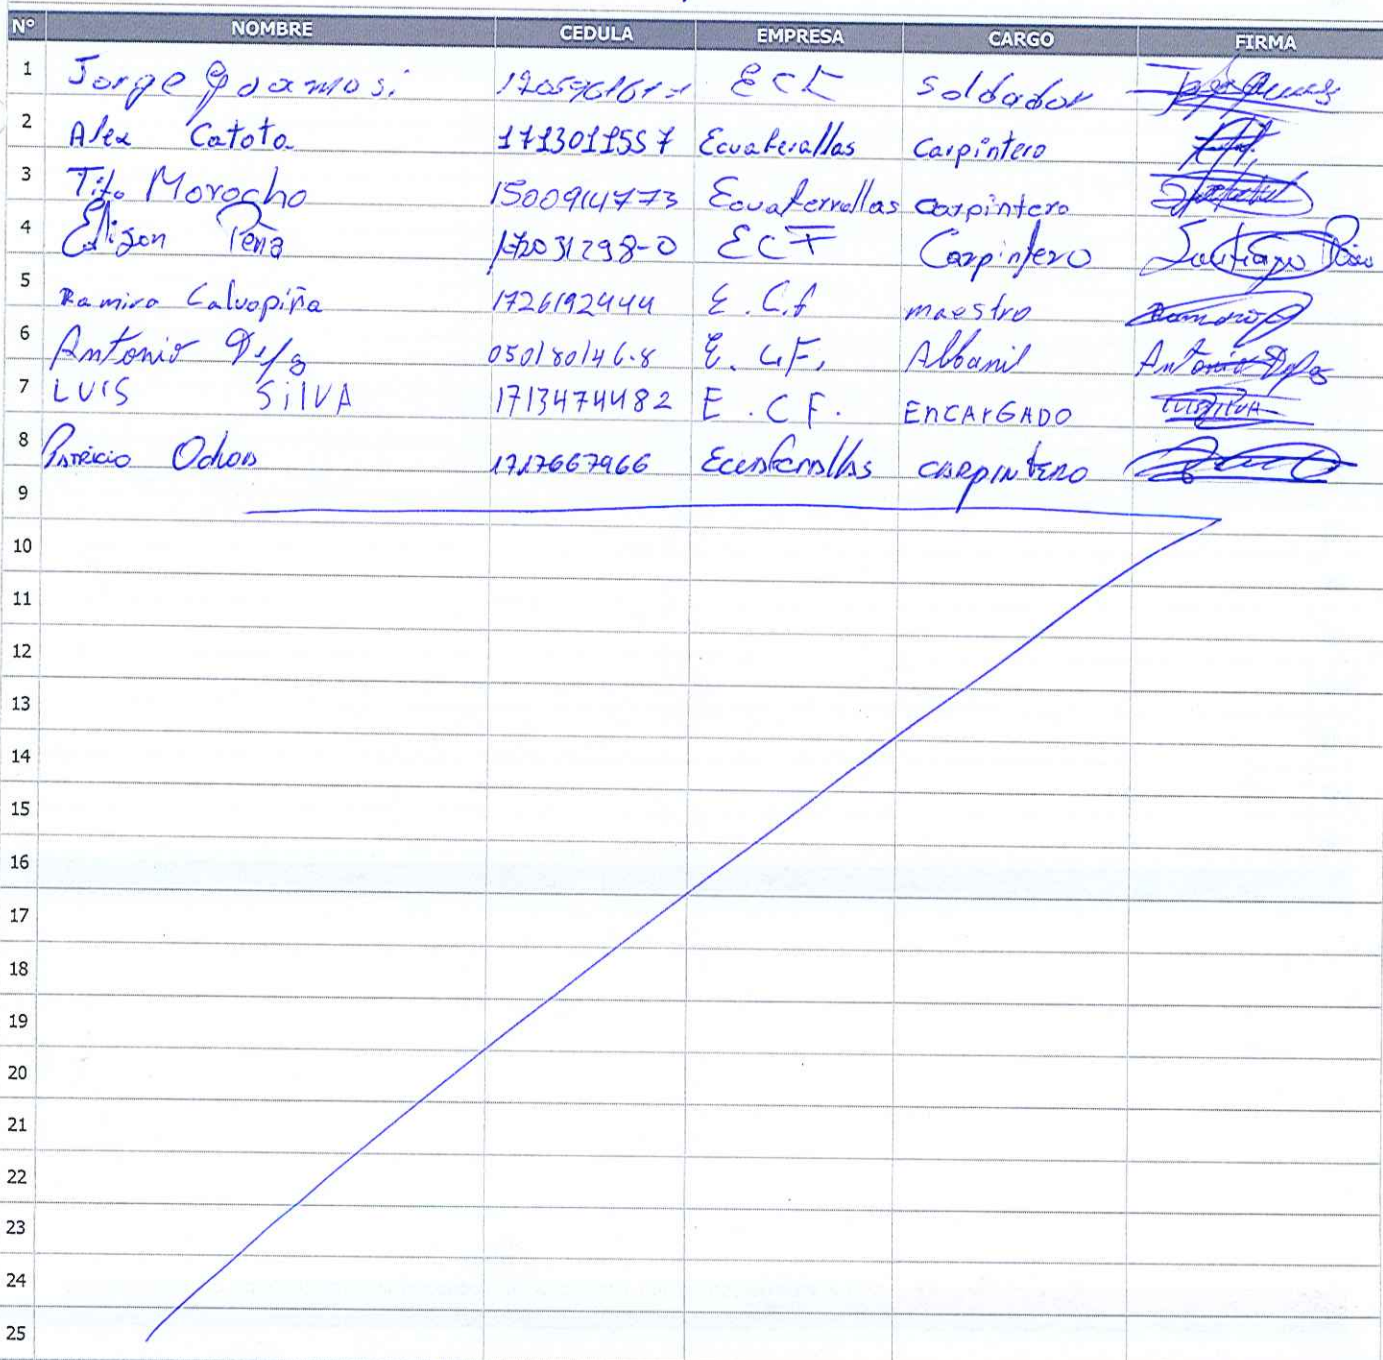 Nº NOMBRE CEDULA EMPRESA CARGO FIRMA
1 Jorge Soldador
2 Alex Catota 1713011557 Ecuaferallas Carpintero
3 Tito Morocho 1500914773 Ecuaferrallas Carpintero
4 Edison Peña 172031298-0 ECF Carpintero Santiago
5 Ramiro Calvopiña 1726192444 E.C.f maestro
6 Antonio 050180146-8 E. C.F. Albanil Antonio
7 LUIS SILVA 1713474482 E.C F. ENCARGADO LUIS SILVA
8 Patricio Ochoa 1717667966 carpintero
9
10
11
12
13
14
15
16
17
18
19
20
21
22
23
24
25